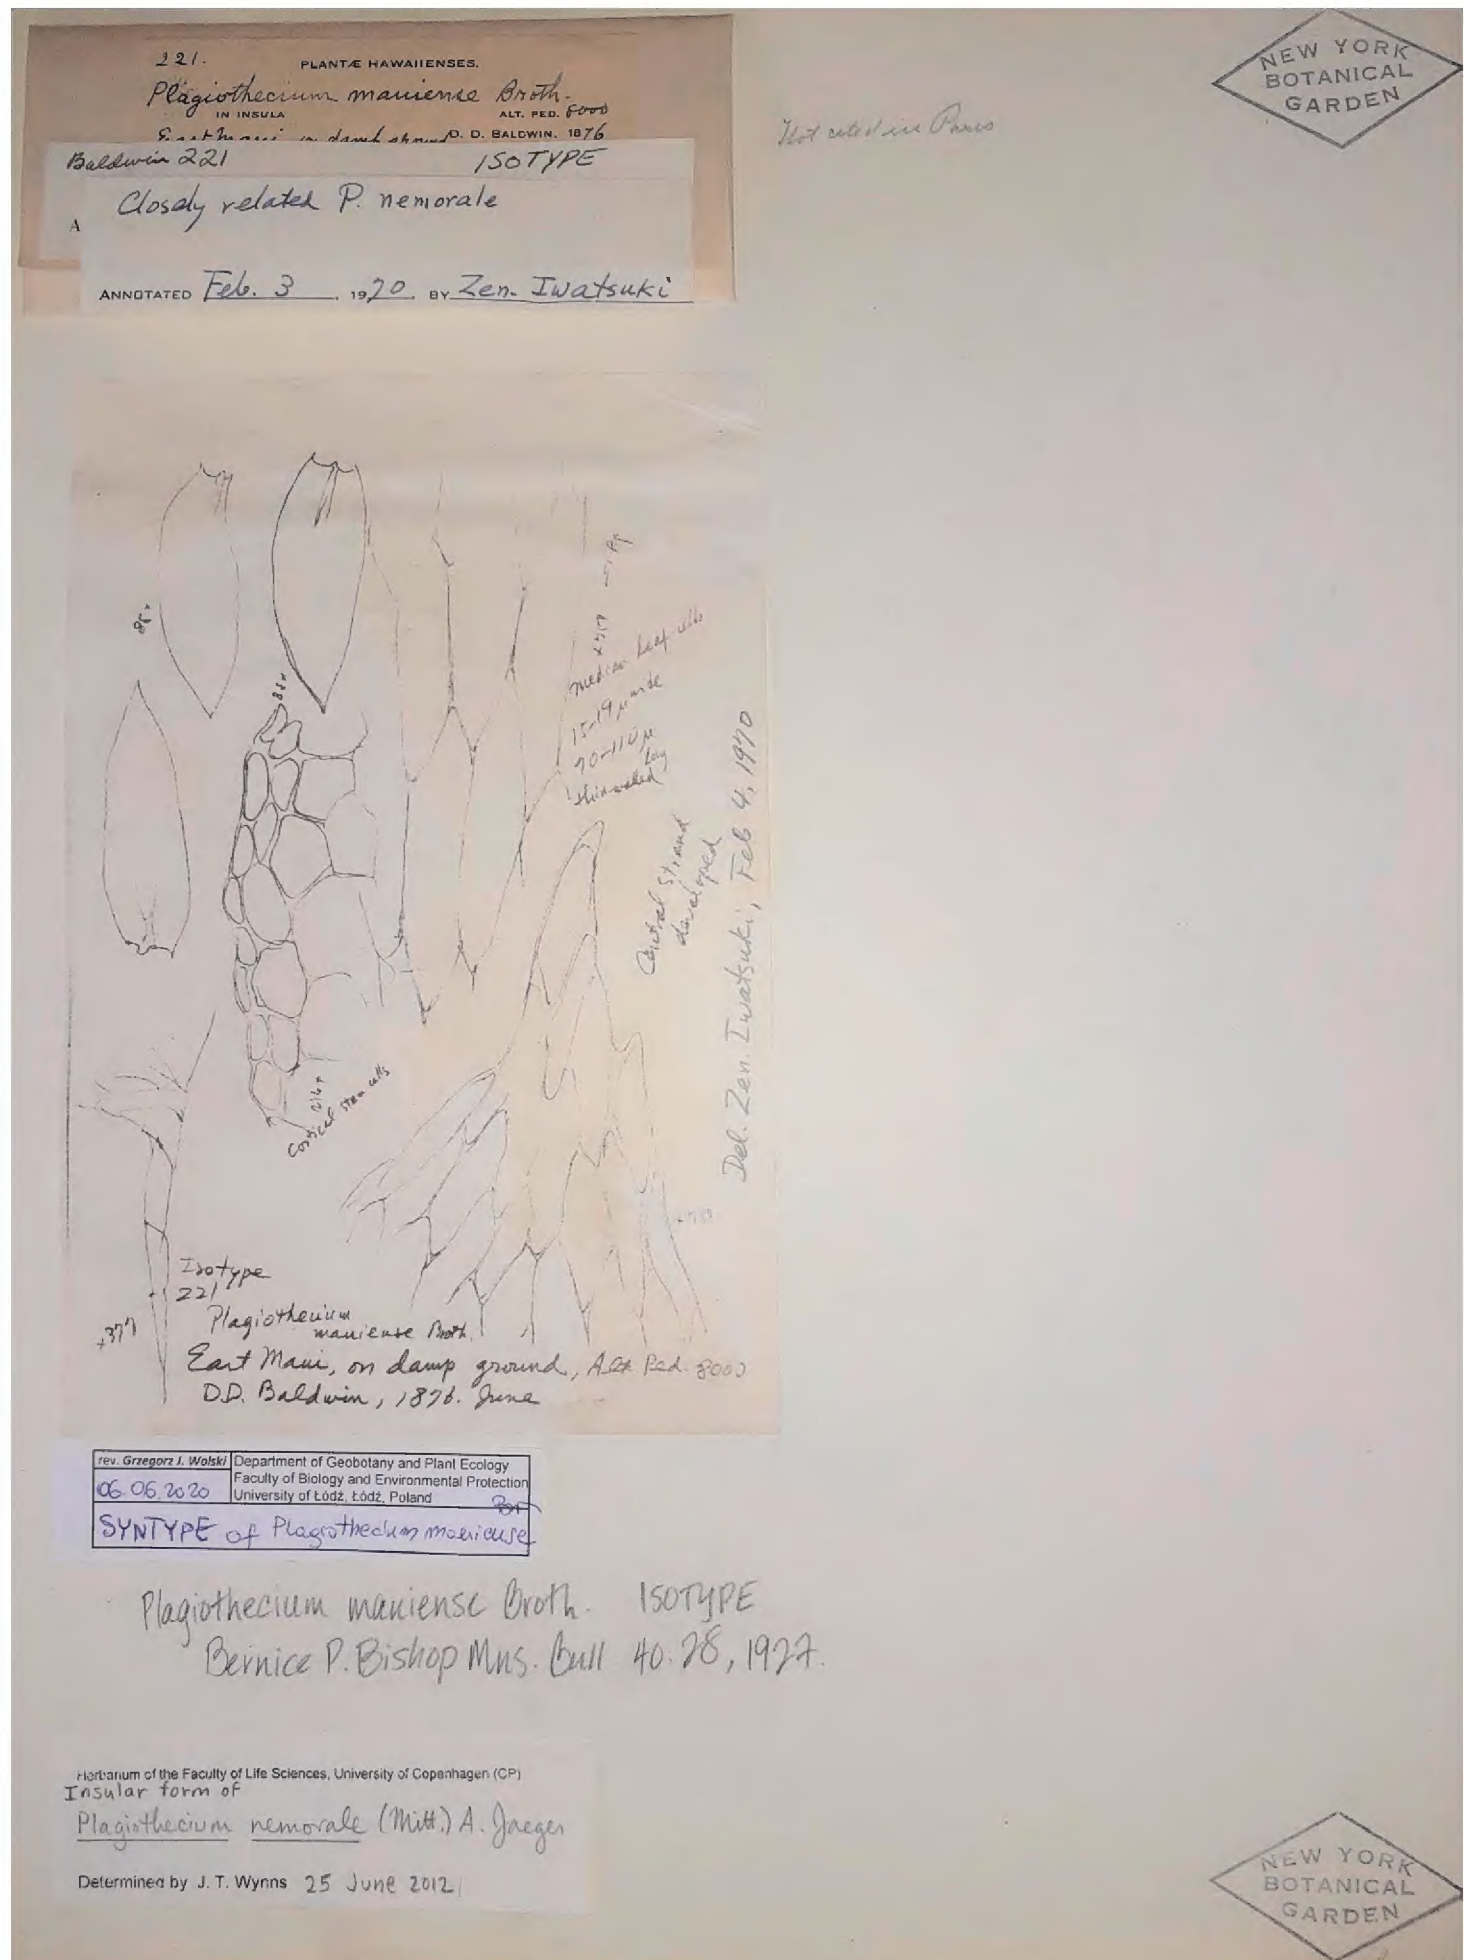 221. PLANTÆ HAWAIIENSES.
Plagiothecium mauiense Broth.
IN INSULA ALT. PED. 8000
East Maui in damp ground D. D. BALDWIN. 1876
Baldwin 221 ISOTYPE
Closely related P. nemorale
A
ANNOTATED Feb. 3 1970 BY Zen. Iwatsuki
NEW YORK
BOTANICAL
GARDEN
Not cited in Paris
88×
88×
×717
median leaf cells
15-19 µ wide
70-110 µ
long
thin-walled
Central strand
developed
Del. Zen. Iwatsuki, Feb 4, 1970
216×
Cortical stem cells
×717
×377
Isotype
221
Plagiothecium
mauiense Broth.
East Maui, on damp ground, Alt Ped. 8000
D.D. Baldwin, 1876. June
rev. Grzegorz J. Wolski
06.06.2020
Department of Geobotany and Plant Ecology
Faculty of Biology and Environmental Protection
University of Łódź, Łódź, Poland
SYNTYPE of Plagiothecium mauiense
Plagiothecium mauiense Broth. ISOTYPE
Bernice P. Bishop Mus. Bull 40:28, 1927.
Herbarium of the Faculty of Life Sciences, University of Copenhagen (CP)
Insular form of
Plagiothecium nemorale (Mitt.) A. Jaeger
Determined by J. T. Wynns 25 June 2012
NEW YORK
BOTANICAL
GARDEN